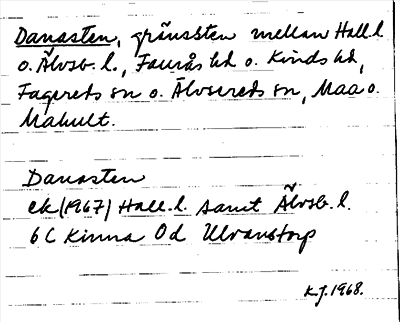 Danasten, gränssten mellan Hall.l
o. Älvsb. l., Faurås hd o. Kinds hd,
Fagereds sn o. Älvsereds sn, Maa o.
Mahult.
Danasten
ek (1967) Hall. l. samt Älvsb. l.
6 C Kinna 0d Ulvanstorp
K.J. 1968.